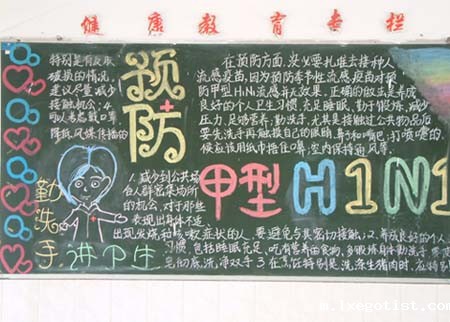 健康教育专栏
特别是有皮肤
破损的情况,
建议尽量减少
接触机会;4
可以考虑戴口罩,
降低风媒传播的
预防
在预防方面,
流感疫苗,因为预防季节性流感疫苗对预
防甲型H1N1流感并无效果。正确的做法是养成
良好的个人卫生习惯,充足睡眠、勤于锻炼、减少
压力、足够营养;勤洗手,尤其是接触过公共物品后
要先洗手再触摸自己的眼睛、鼻子和嘴巴;打喷嚏的时
候应该用纸巾捂住口鼻;室内保持通风等。
甲型H1N1
勤洗手
讲卫生
1、减少到公共场
合人群密集场所
的机会,对于那些
表现出身体不适、
出现发烧和咳嗽症状的人,要避免与其密切接触;2、养成良好的个人
习惯,包括睡眠充足、吃有营养的食物、多锻炼身体勤洗手
彻底洗净双手 3 特别是洗涤生猪肉时,应特别
www.ixegotist.com